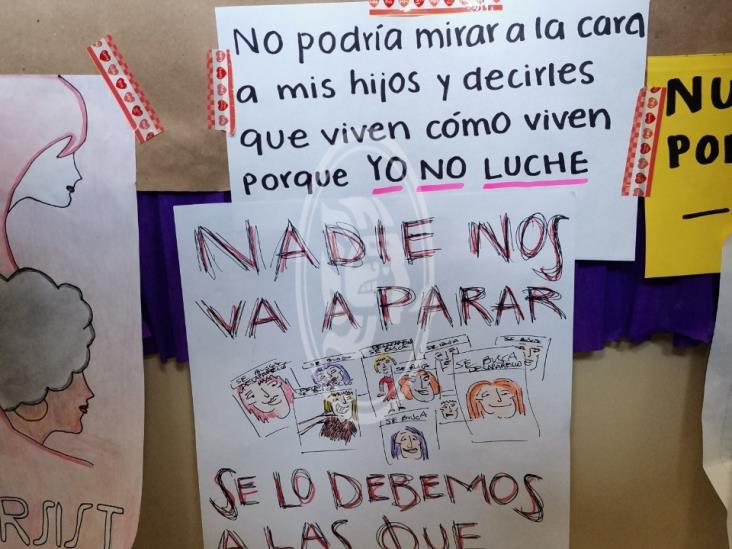 NO podría mirar a la cara
a mis hijos y decirles
que viven cómo viven
porque YO NO LUCHE
NU
POR
NADIE NOS
VA A PARAR
SE BUSCA
SE BUSCA
SE BUSCA
SE BUSCA
SE BUSCA
SE LO DEBEMOS
A LAS QUE
RSIST